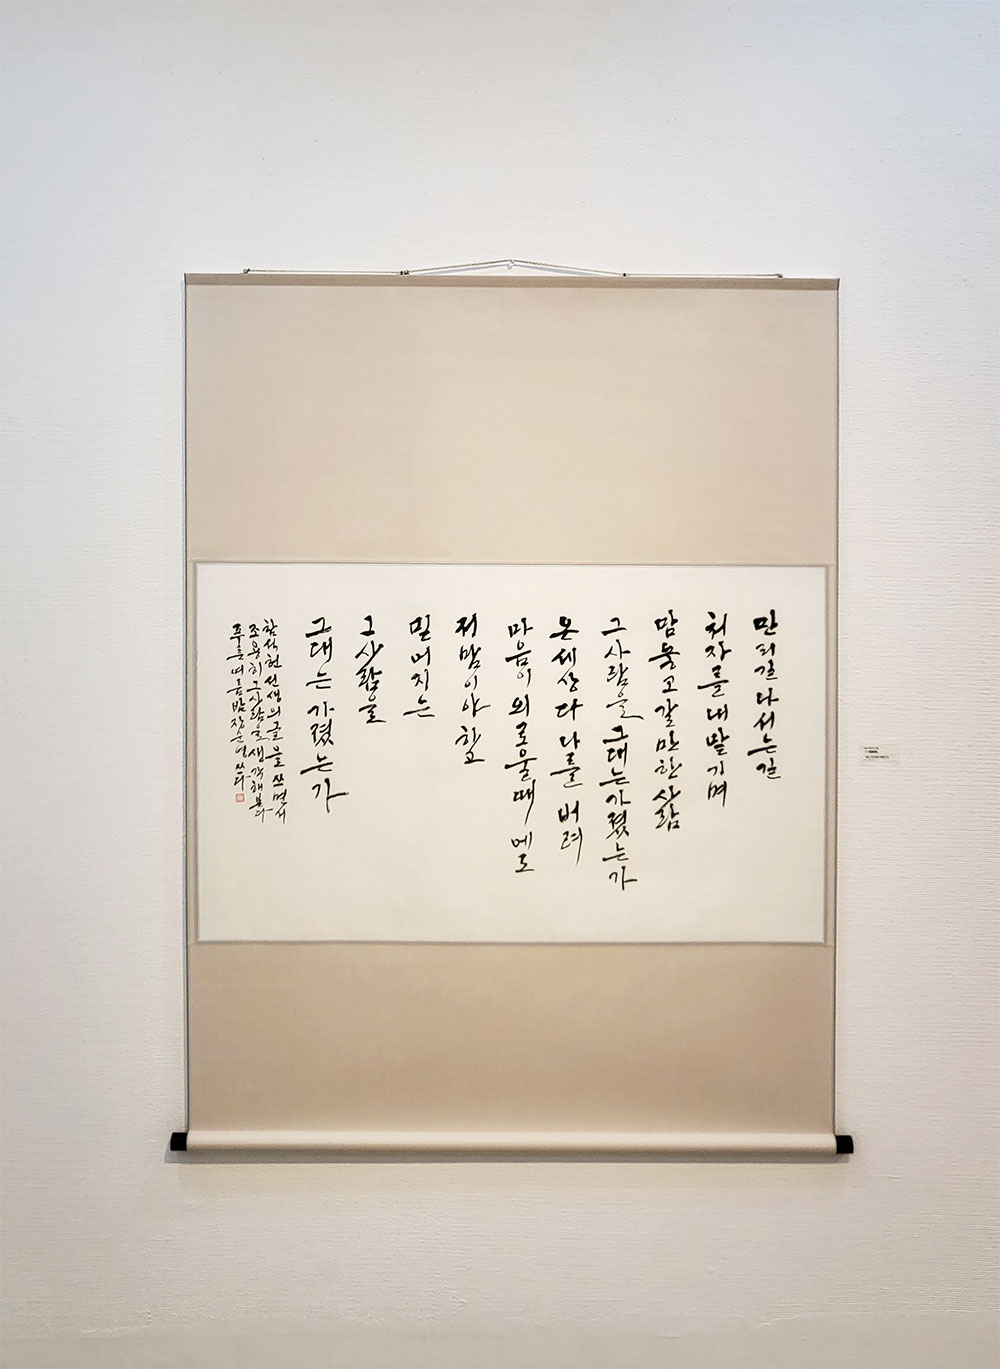 만리길 나서는 길
처자를 내맡기며
맘 놓고 갈 만한 사람
그 사람을 그대는 가졌는가
온 세상 다 나를 버려
마음이 외로울 때에도
저 맘이야 하고
믿어지는
그 사람을
그대는 가졌는가
함석헌 선생의 글을 쓰면서
조용히 그 사람을 생각해본다
푸른 여름밤 장순 쓰다